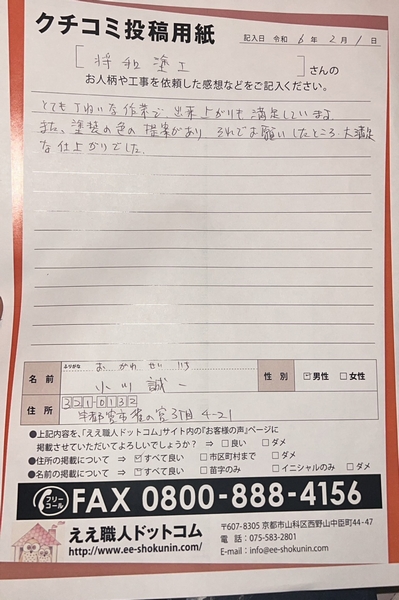 クチコミ投稿用紙
記入日 令和 6年 2月 1日
[ 将和塗工 ]さんの
お人柄や工事を依頼した感想などをご記入ください。
とてもていねいな作業で 出来上がりも満足しています。
また、塗装の色の提案があり それでお願いしたところ 大満足
な仕上がりでした。
ふりがな おがわ せいいち
名前 小川 誠一 性別 男性 女性
住所 321-0132
宇都宮市雀の宮3丁目 4-21
●上記内容を、「ええ職人ドットコム」サイト内の『お客様の声』ページに
掲載させていただいてよろしいでしょうか? ⇒ □良い □ダメ
●住所の掲載について ⇒ ☑すべて良い □市区町村まで □ダメ
●名前の掲載について ⇒ ☑すべて良い □苗字のみ □イニシャルのみ □ダメ
フリーコール FAX 0800-888-4156
ええ職人ドットコム
http://www.ee-shokunin.com/
〒607-8305 京都市山科区西野山中臣町44-47
電話:075-583-2801
E-mail:info@ee-shokunin.com